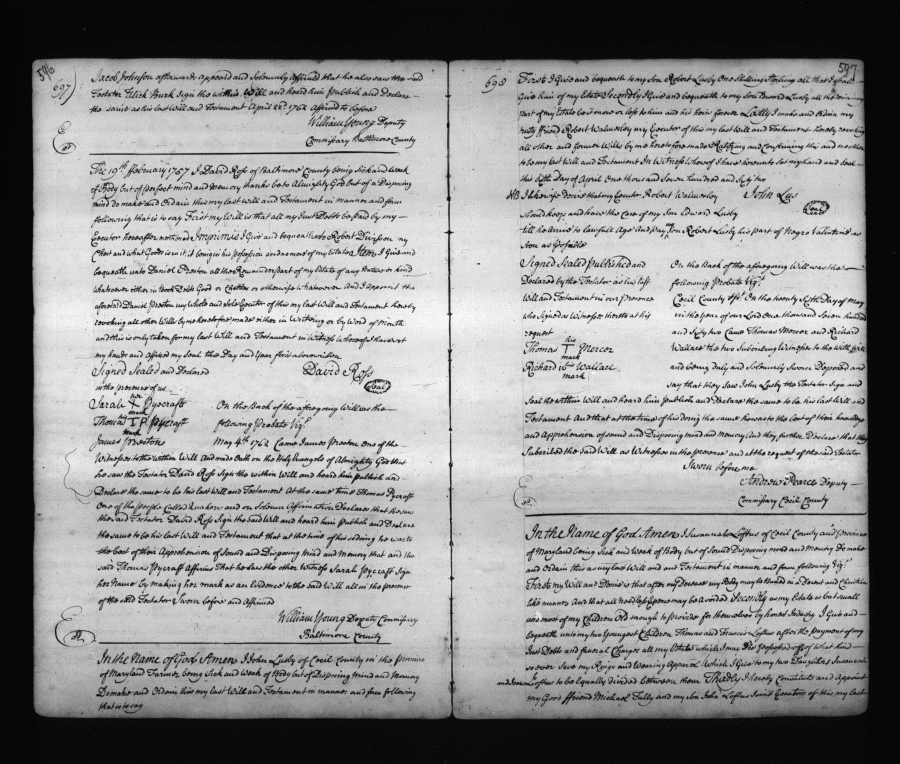 596
697
Jacob Johnson afterwards appeard and Solemnly Affirmd that he also saw the
Testator Ulick Burk sign the within Will and heard him Publish and Declare
the same as his last Will and Testament April 22d 1762 Affirmd to before
William Young Deputy
Commissary Baltimore County
The 19th ffebruary 1757 I David Ross of Baltimore County being Sick and weak
of Body but of perfect mind and memory thanks be to Almighty God but of a Disposing
mind do make and Ordain this my last Will and Testament in manner and form
following that is to say First my Will is that all my Just Debts be paid by my
Executor hereafter nominated Imprimis I Give and bequeath to Robert my
Chest and what Goods is in it, it being in his possession and as some of my Estate Item I Give and
bequeath unto Daniel Preston all the Remainder part of my Estate of any Nature or kind
whatsoever either in Book Debts Good or Chattles or otherwise whatsoever And I appoint the
aforesaid Daniel Preston my whole and Sole Executor of this my last Will and Testament hereby
revoking all other Wills by me heretofore made either in Writeing or by Word of Mouth
and this is only taken for my last Will and Testament in Witness whereof I have set
my hand and affixed my Seal the Day and Year first above written
Signed Sealed and Declared David Ross
in the presence of us Seal
Sarah her mark Pycraft On the Back of the aforegoing Will was the
Thomas T P mark Pycraft following Probate Vizt
James Preston May 4th 1762 Came James Preston one of the
Witnesses to the within Will and made Oath on the Holy Evangels of Almighty God that
he saw the Testator David Ross Sign the within Will and heard him publish and
Declare the same to be his last Will and Testament At the same time Thomas Pycraft
One of the people Called Quakers and on Solemn Affirmation Declares that he saw
the said Testator David Ross Sign the said Will and heard him Publish and Declare
the same to be his last Will and Testament that at the time of his so doing he was to
the best of their Apprehension of Sound and Disposing mind and Memory that and the
said Thomas Pycraft Affirms That he saw the other Witness Sarah Pycraft Sign
her Name by making her mark as an Evidence to the said Will all in the presence
of the said Testator Sworn before and Affirmed
William Young Deputy Commissary
Baltimore County
In the Name of God Amen I John Lusby of Cecil County in the Province
of Maryland Farmer being Sick and Weak of Body but of Disposing mind and Memory
Do make and Ordain this my last Will and Testament in manner and form following
that is to say
597
698
First I Give and bequeath to my Son Robert Lusby One Shilling Sterling all that I
Give him of my Estate Secondly I Give and bequeath to my Son Edward Lusby all the
part of my Estate be it more or less to him and his heirs forever Lastly I make and Ordain my
trusty ffriend Robert Walmsley my Executor of this my last Will and Testament hereby revoking
all other and former Wills by me heretofore made Ratifying and Confirming this and no other
to be my last Will and Testament In Witness Whereof I have hereunto Set my hand and Seal
this Sixth Day of April One thousand and Seven hundred and Sixty two
NB I likewise desire that my Executor Robert Walmsley John Lus
Should keep and have the Care of my Son Edward Lusby Seal
till he arrive to lawfull Age And pay Son Robert Lusby his part of Negroe Valentine as
Soon as possable
Signed Sealed Published and On the Back of the aforegoing Will was the
Declared by the Testator as his last following Probate Vizt
Will and Testament in our presence Cecil County Sst. On the twenty Sixth Day of May
who Signed as Witnesses thereto at his in the year of our Lord One thousand Seven hundred
request and Sixty two Came Thomas Mercer and Richard
Thomas his T mark Mercer Wallace the two Subscribing Witnesses to the within Will
Richard his mark Wallace and being duly and Solemnly Sworn Deposed and
say that they Saw John Lusby the Testator Sign and
Seal the within Will and heard him publish and Declare the same to be his last Will and
Testament And that at the time of his doing the same he was to the best of their knowledge
and Apprehension of sound and Disposing mind and Memory And they further Declare that they
Subscribed the said Will as Witnesses in the presence and at the request of the said Testator
Sworn before me
Andrew Pearce Deputy
Commissary Cecil County
In the Name of God Amen I Susannah Loftus of Cecil County and Province
of Maryland being Sick and Weak of Body but of Sound Disposing mind and Memory Do make
and Ordain this as my last Will and Testament in manner and form following Vizt
First my Will and Desire is that after my Decease my Body may be Buried in a Decent and Christian
like manner And that all needless Expence may be avoided Secondly as my Estate is but small
and most of my Children Old enough to provide for themselves by honest Industry I Give and
bequeath unto my two Youngest Children Thomas and Francis Loftus after the payment of my
Just Debts and funeral Charges all my Estate which I may Die possessed off of what kind
so ever Save my Rings and Wearing Apparel Which I Give to my two Daughters Susannah
Loftus to be Equally divided between them Thirdly I hereby Constitute and Appoint
my Good ffriend Michael Tully and my Son John Loftus Joint Executors of this my last